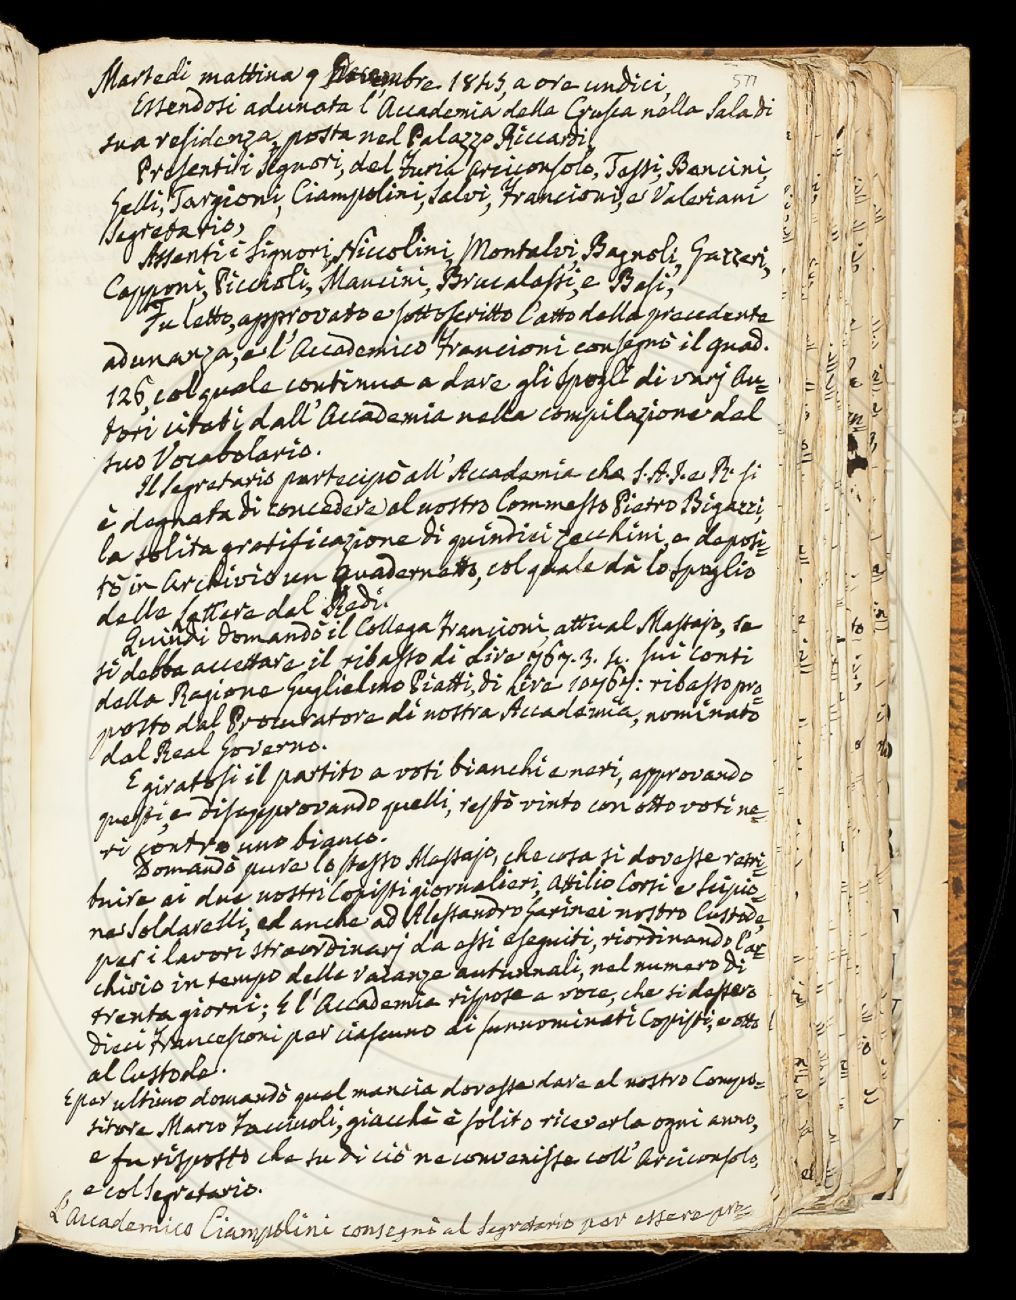 577
Martedi mattina 9 Decembre 1845, a ore undici,
Essendosi adunata l'Accademia della Crusca nella Sala di
sua residenza, posta nel Palazzo Riccardi,
Presenti i Signori, del Furia Arciconsolo, Tassi, Bencini,
Gelli, Targioni, Ciampolini, Salvi, Francioni, e Valeriani
Segretario,
Assenti i Signori, Niccolini, Montalvi, Bagnoli, Gazzeri,
Capponi, Piccioli, Mancini, Brucalassi, e Basi,
Fu letto, approvato e sottoscritto l'atto della precedente
adunanza, e l'Accademico Francioni consegnò il quad.
126, col quale continua a dare gli spogli di varj Au=
tori citati dall'Accademia nella compilazione del
suo Vocabolario.
Il Segretario partecipò all'Accademia che S.A.I. e R. si
è degnata di concedere al nostro Commesso Pietro Bigazzi,
la solita gratificazione di quindici Zecchini, e deposi=
tò in Archivio un quadernetto, col quale dà lo spoglio
delle Lettere del Redi.
Quindi domandò il Collega Francioni, attual Massajo, se
si debba accettare il ribasso di Lire 767. 3. 4. sui conti
della Ragione Guglielmo Piatti, di Lire : ribasso pro=
posto dal Procuratore di nostra Accademia, nominato
dal Real Governo.
E giratosi il partito a voti bianchi e neri, approvando
questi, e disapprovando quelli, restò vinto con otto voti ne=
ri contro uno bianco.
Domandò pure lo stesso Massajo, che cosa si dovesse retri=
buire ai due nostri Copisti giornalieri, Attilio Corsi e Scipio=
ne Soldarelli, ed anche ad Alessandro Garinei nostro Custode,
per i lavori straordinarj da essi eseguiti, riordinando l'ar=
chivio in tempo delle vacanze autunnali, nel numero di
trenta giorni; E l'Accademia rispose a voce, che si dessero
dieci Francesconi per ciascuno ai sunnominati Copisti, e otto
al Custode.
E per ultimo domandò qual mancia dovesse dare al nostro Compo=
sitore Marco Faccioli, giacchè è solito riceverla ogni anno,
e fu risposto che su di ciò ne convenisse coll'Arciconsolo,
e col Segretario.
L'Accademico Ciampolini consegnò al Segretario per essere pre=